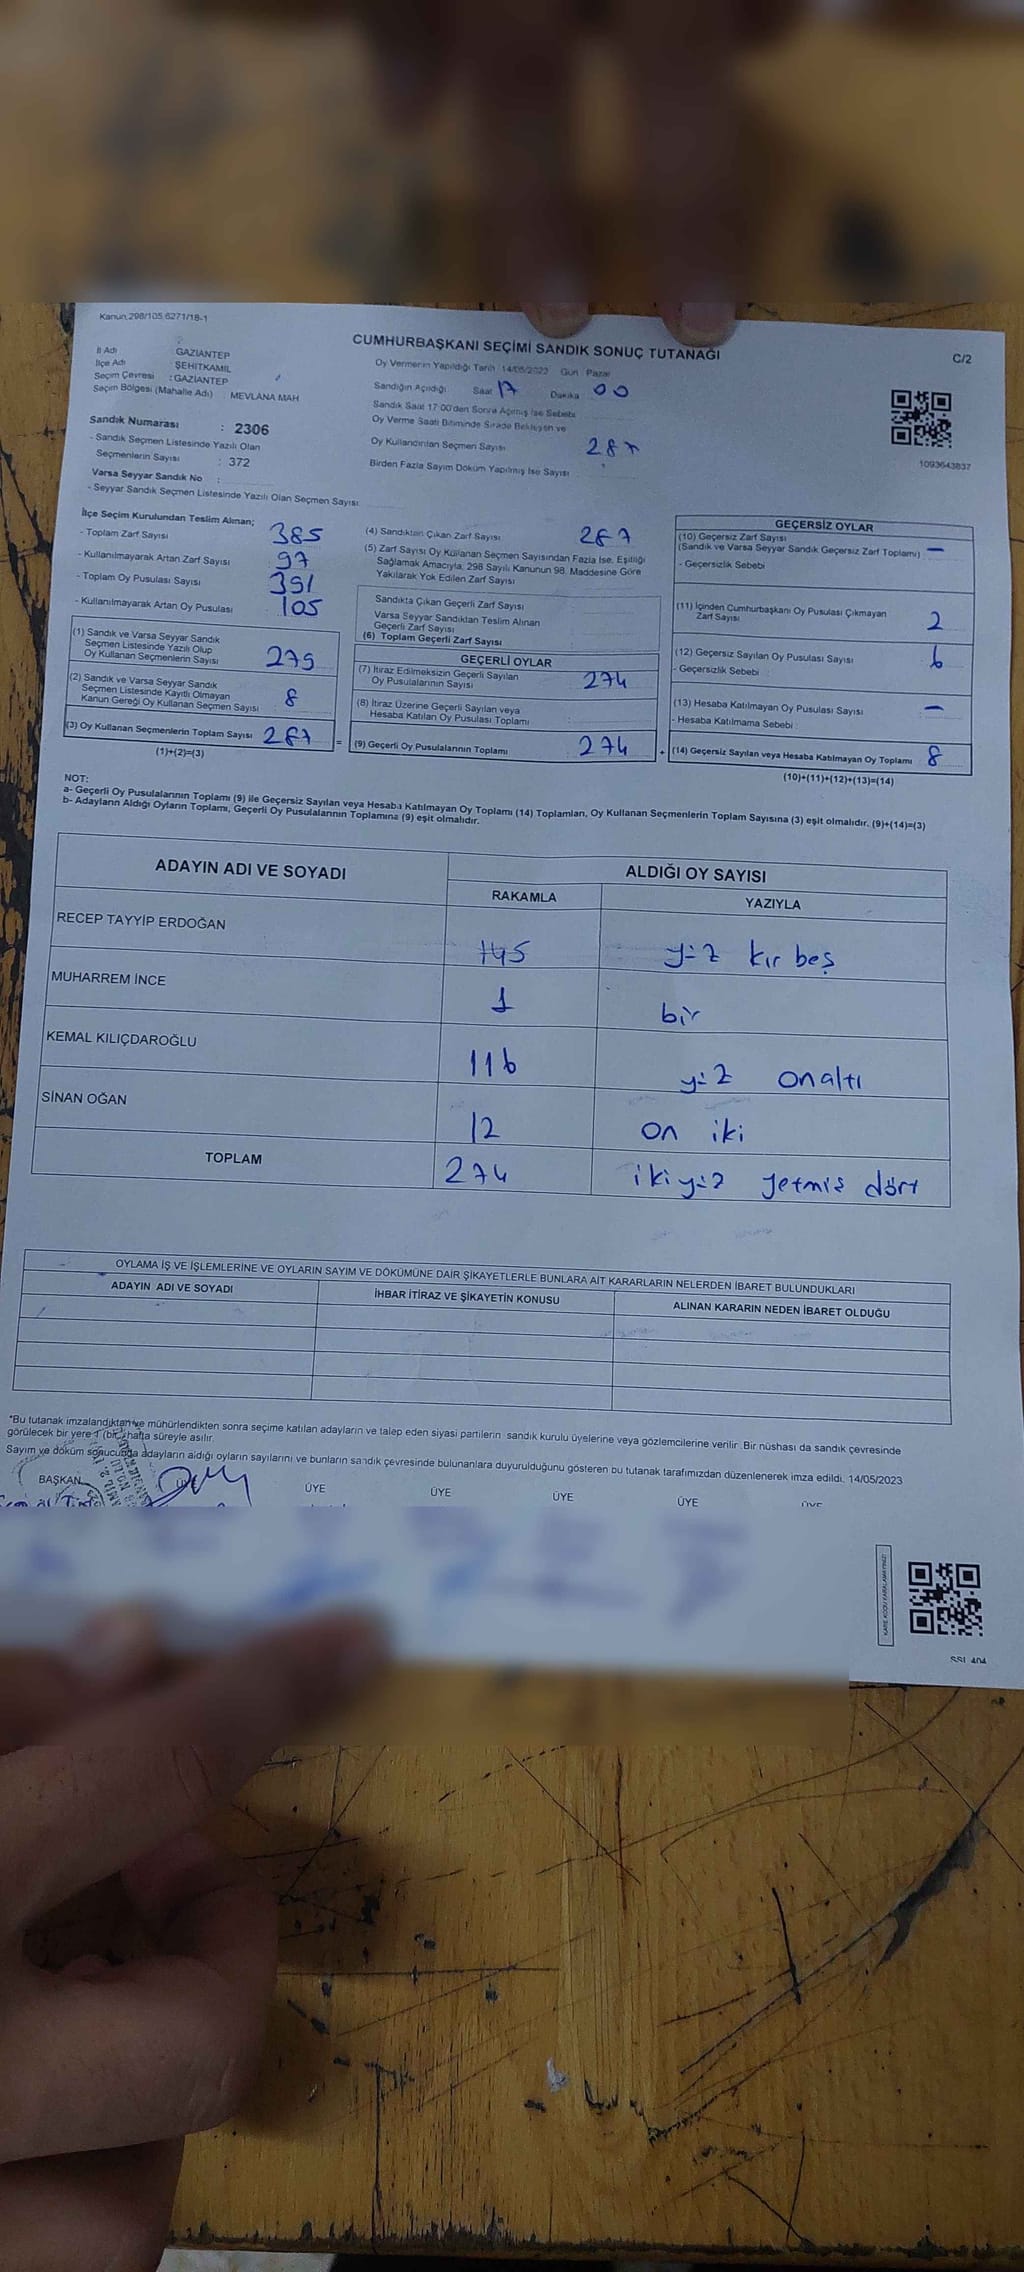 Kanun 298/105,6271/18-1
CUMHURBAŞKANI SEÇİMİ SANDIK SONUÇ TUTANAĞI
C/2
İl Adı GAZİANTEP
İlçe Adı ŞEHİTKAMİL
Seçim Çevresi : GAZİANTEP
Seçim Bölgesi (Mahalle Adı) : MEVLANA MAH
Oy Vermenin Yapıldığı Tarih 14/05/2023 Gün Pazar
Sandığın Açıldığı Saat 17 Dakika 00
Sandık Saat 17:00'den Sonra Açılmış İse Sebebi
Oy Verme Saati Bitiminde Sırada Bekleyen ve
Oy Kullandırılan Seçmen Sayısı 287
Birden Fazla Sayım Döküm Yapılmış İse Sayısı
1093643837
Sandık Numarası : 2306
- Sandık Seçmen Listesinde Yazılı Olan
Seçmenlerin Sayısı : 372
Varsa Seyyar Sandık No :
- Seyyar Sandık Seçmen Listesinde Yazılı Olan Seçmen Sayısı
İlçe Seçim Kurulundan Teslim Alınan;
- Toplam Zarf Sayısı 385
- Kullanılmayarak Artan Zarf Sayısı 97
- Toplam Oy Pusulası Sayısı 391
- Kullanılmayarak Artan Oy Pusulası 105
(1) Sandık ve Varsa Seyyar Sandık
Seçmen Listesinde Yazılı Olup
Oy Kullanan Seçmenlerin Sayısı 279
(2) Sandık ve Varsa Seyyar Sandık
Seçmen Listesinde Kayıtlı Olmayan
Kanun Gereği Oy Kullanan Seçmen Sayısı 8
(3) Oy Kullanan Seçmenlerin Toplam Sayısı 287
(1)+(2)=(3)
(4) Sandıktan Çıkan Zarf Sayısı 287
(5) Zarf Sayısı Oy Kullanan Seçmen Sayısından Fazla İse, Eşitliği
Sağlamak Amacıyla, 298 Sayılı Kanunun 98. Maddesine Göre
Yakılarak Yok Edilen Zarf Sayısı
Sandıkta Çıkan Geçerli Zarf Sayısı
Varsa Seyyar Sandıktan Teslim Alınan
Geçerli Zarf Sayısı
(6) Toplam Geçerli Zarf Sayısı
GEÇERLİ OYLAR
(7) İtiraz Edilmeksizin Geçerli Sayılan
Oy Pusulalarının Sayısı 274
(8) İtiraz Üzerine Geçerli Sayılan veya
Hesaba Katılan Oy Pusulası Toplamı
= (9) Geçerli Oy Pusulalarının Toplamı 274
GEÇERSİZ OYLAR
(10) Geçersiz Zarf Sayısı
(Sandık ve Varsa Seyyar Sandık Geçersiz Zarf Toplamı) —
- Geçersizlik Sebebi
(11) İçinden Cumhurbaşkanı Oy Pusulası Çıkmayan
Zarf Sayısı 2
(12) Geçersiz Sayılan Oy Pusulası Sayısı 6
- Geçersizlik Sebebi
(13) Hesaba Katılmayan Oy Pusulası Sayısı —
- Hesaba Katılmama Sebebi
+ (14) Geçersiz Sayılan veya Hesaba Katılmayan Oy Toplamı 8
(10)+(11)+(12)+(13)=(14)
NOT:
a- Geçerli Oy Pusulalarının Toplamı (9) ile Geçersiz Sayılan veya Hesaba Katılmayan Oy Toplamı (14) Toplamları, Oy Kullanan Seçmenlerin Toplam Sayısına (3) eşit olmalıdır. (9)+(14)=(3)
b- Adayların Aldığı Oyların Toplamı, Geçerli Oy Pusulalarının Toplamına (9) eşit olmalıdır.
ADAYIN ADI VE SOYADI ALDIĞI OY SAYISI
RAKAMLA YAZIYLA
RECEP TAYYİP ERDOĞAN 145 yüz kır beş
MUHARREM İNCE 1 bir
KEMAL KILIÇDAROĞLU 116 yüz onaltı
SİNAN OĞAN 12 on iki
TOPLAM 274 ikiyüz yetmiş dört
OYLAMA İŞ VE İŞLEMLERİNE VE OYLARIN SAYIM VE DÖKÜMÜNE DAİR ŞİKAYETLERLE BUNLARA AİT KARARLARIN NELERDEN İBARET BULUNDUKLARI
ADAYIN ADI VE SOYADI İHBAR İTİRAZ VE ŞİKAYETİN KONUSU ALINAN KARARIN NEDEN İBARET OLDUĞU
*Bu tutanak imzalandıktan ve mühürlendikten sonra seçime katılan adayların ve talep eden siyasi partilerin sandık kurulu üyelerine veya gözlemcilerine verilir. Bir nüshası da sandık çevresinde
görülecek bir yere 1 (bir) hafta süreyle asılır.
Sayım ve döküm sonucunda adayların aldığı oyların sayılarını ve bunların sandık çevresinde bulunanlara duyurulduğunu gösteren bu tutanak tarafımızdan düzenlenerek imza edildi. 14/05/2023
BAŞKAN ÜYE ÜYE ÜYE ÜYE ÜYE
KARE KODU KARALAMAYINIZ!
SSI 404